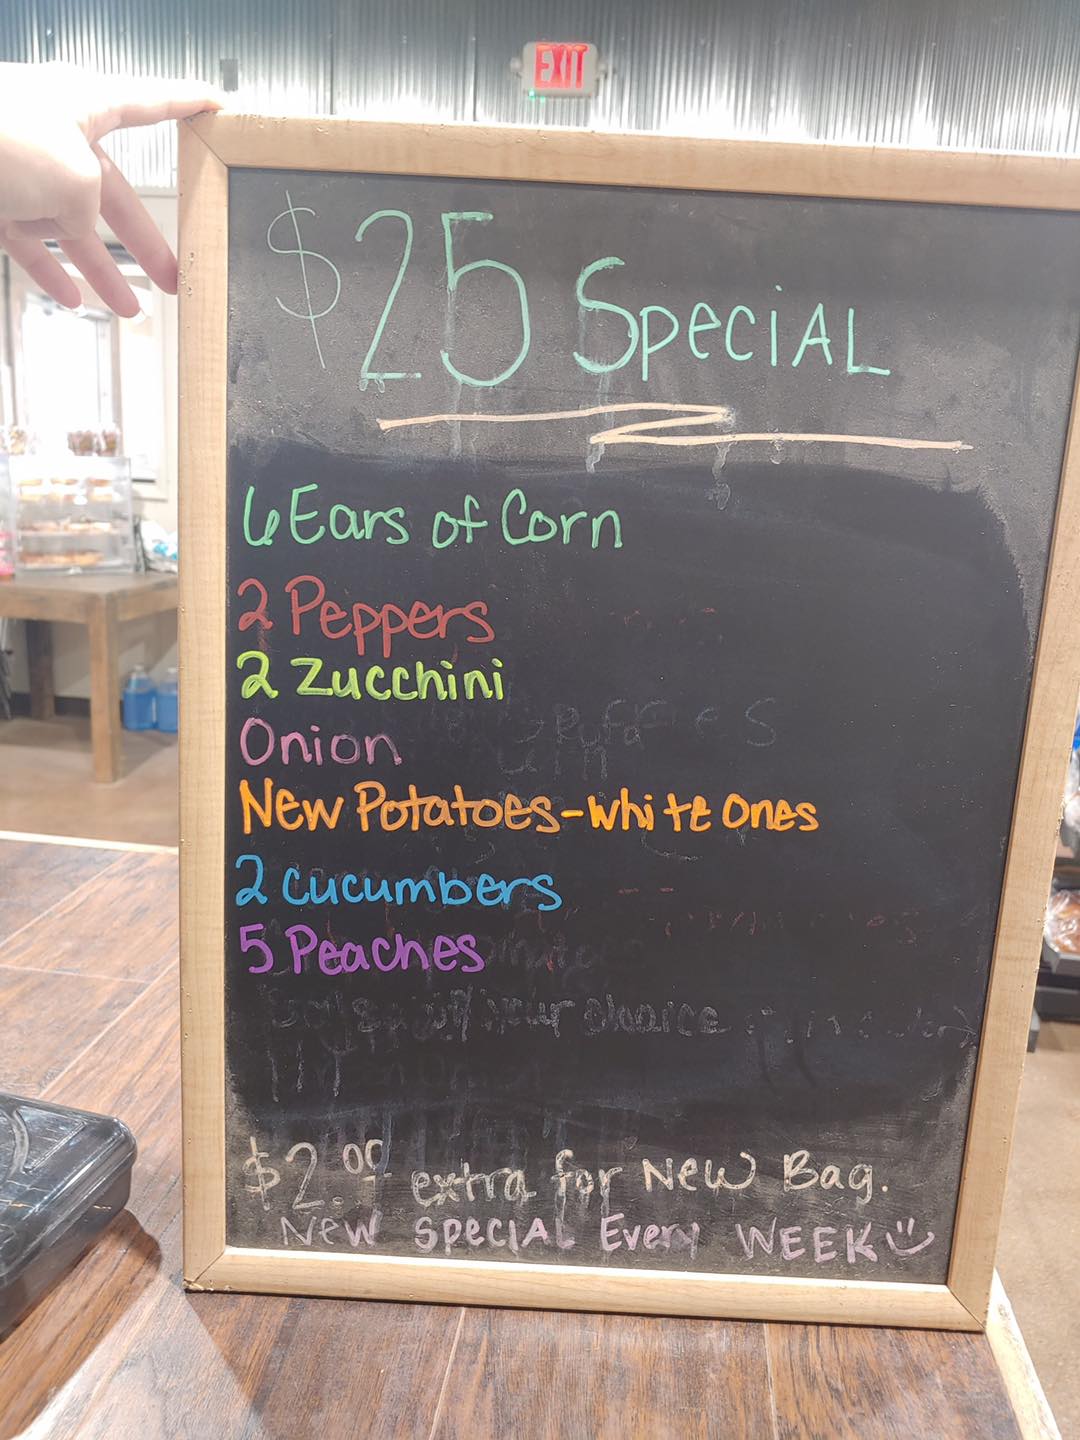 EXIT
$25 Special
6 Ears of Corn
2 Peppers
2 Zucchini
Onion
New Potatoes-White Ones
2 cucumbers
5 Peaches
of your choice
$2.00 extra for New Bag.
New Special Every WEEK